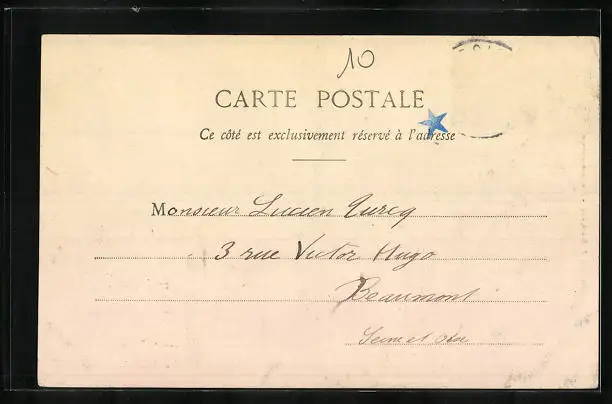 10
CARTE POSTALE
Ce côté est exclusivement réservé à l'adresse
Monsieur Lucien Turcq
3 rue Victor Hugo
Beaumont
Seine et Oise